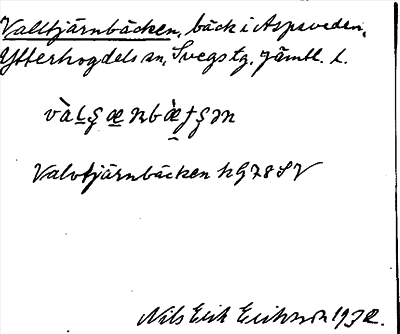 Valltjärnbäcken, bäck i Aspveden,
Ytterhogdals sn, Svegs tg. Jämtl. l.
Valvtjärnbäcken hG78SV
Nils Erik Eriksson 1932.